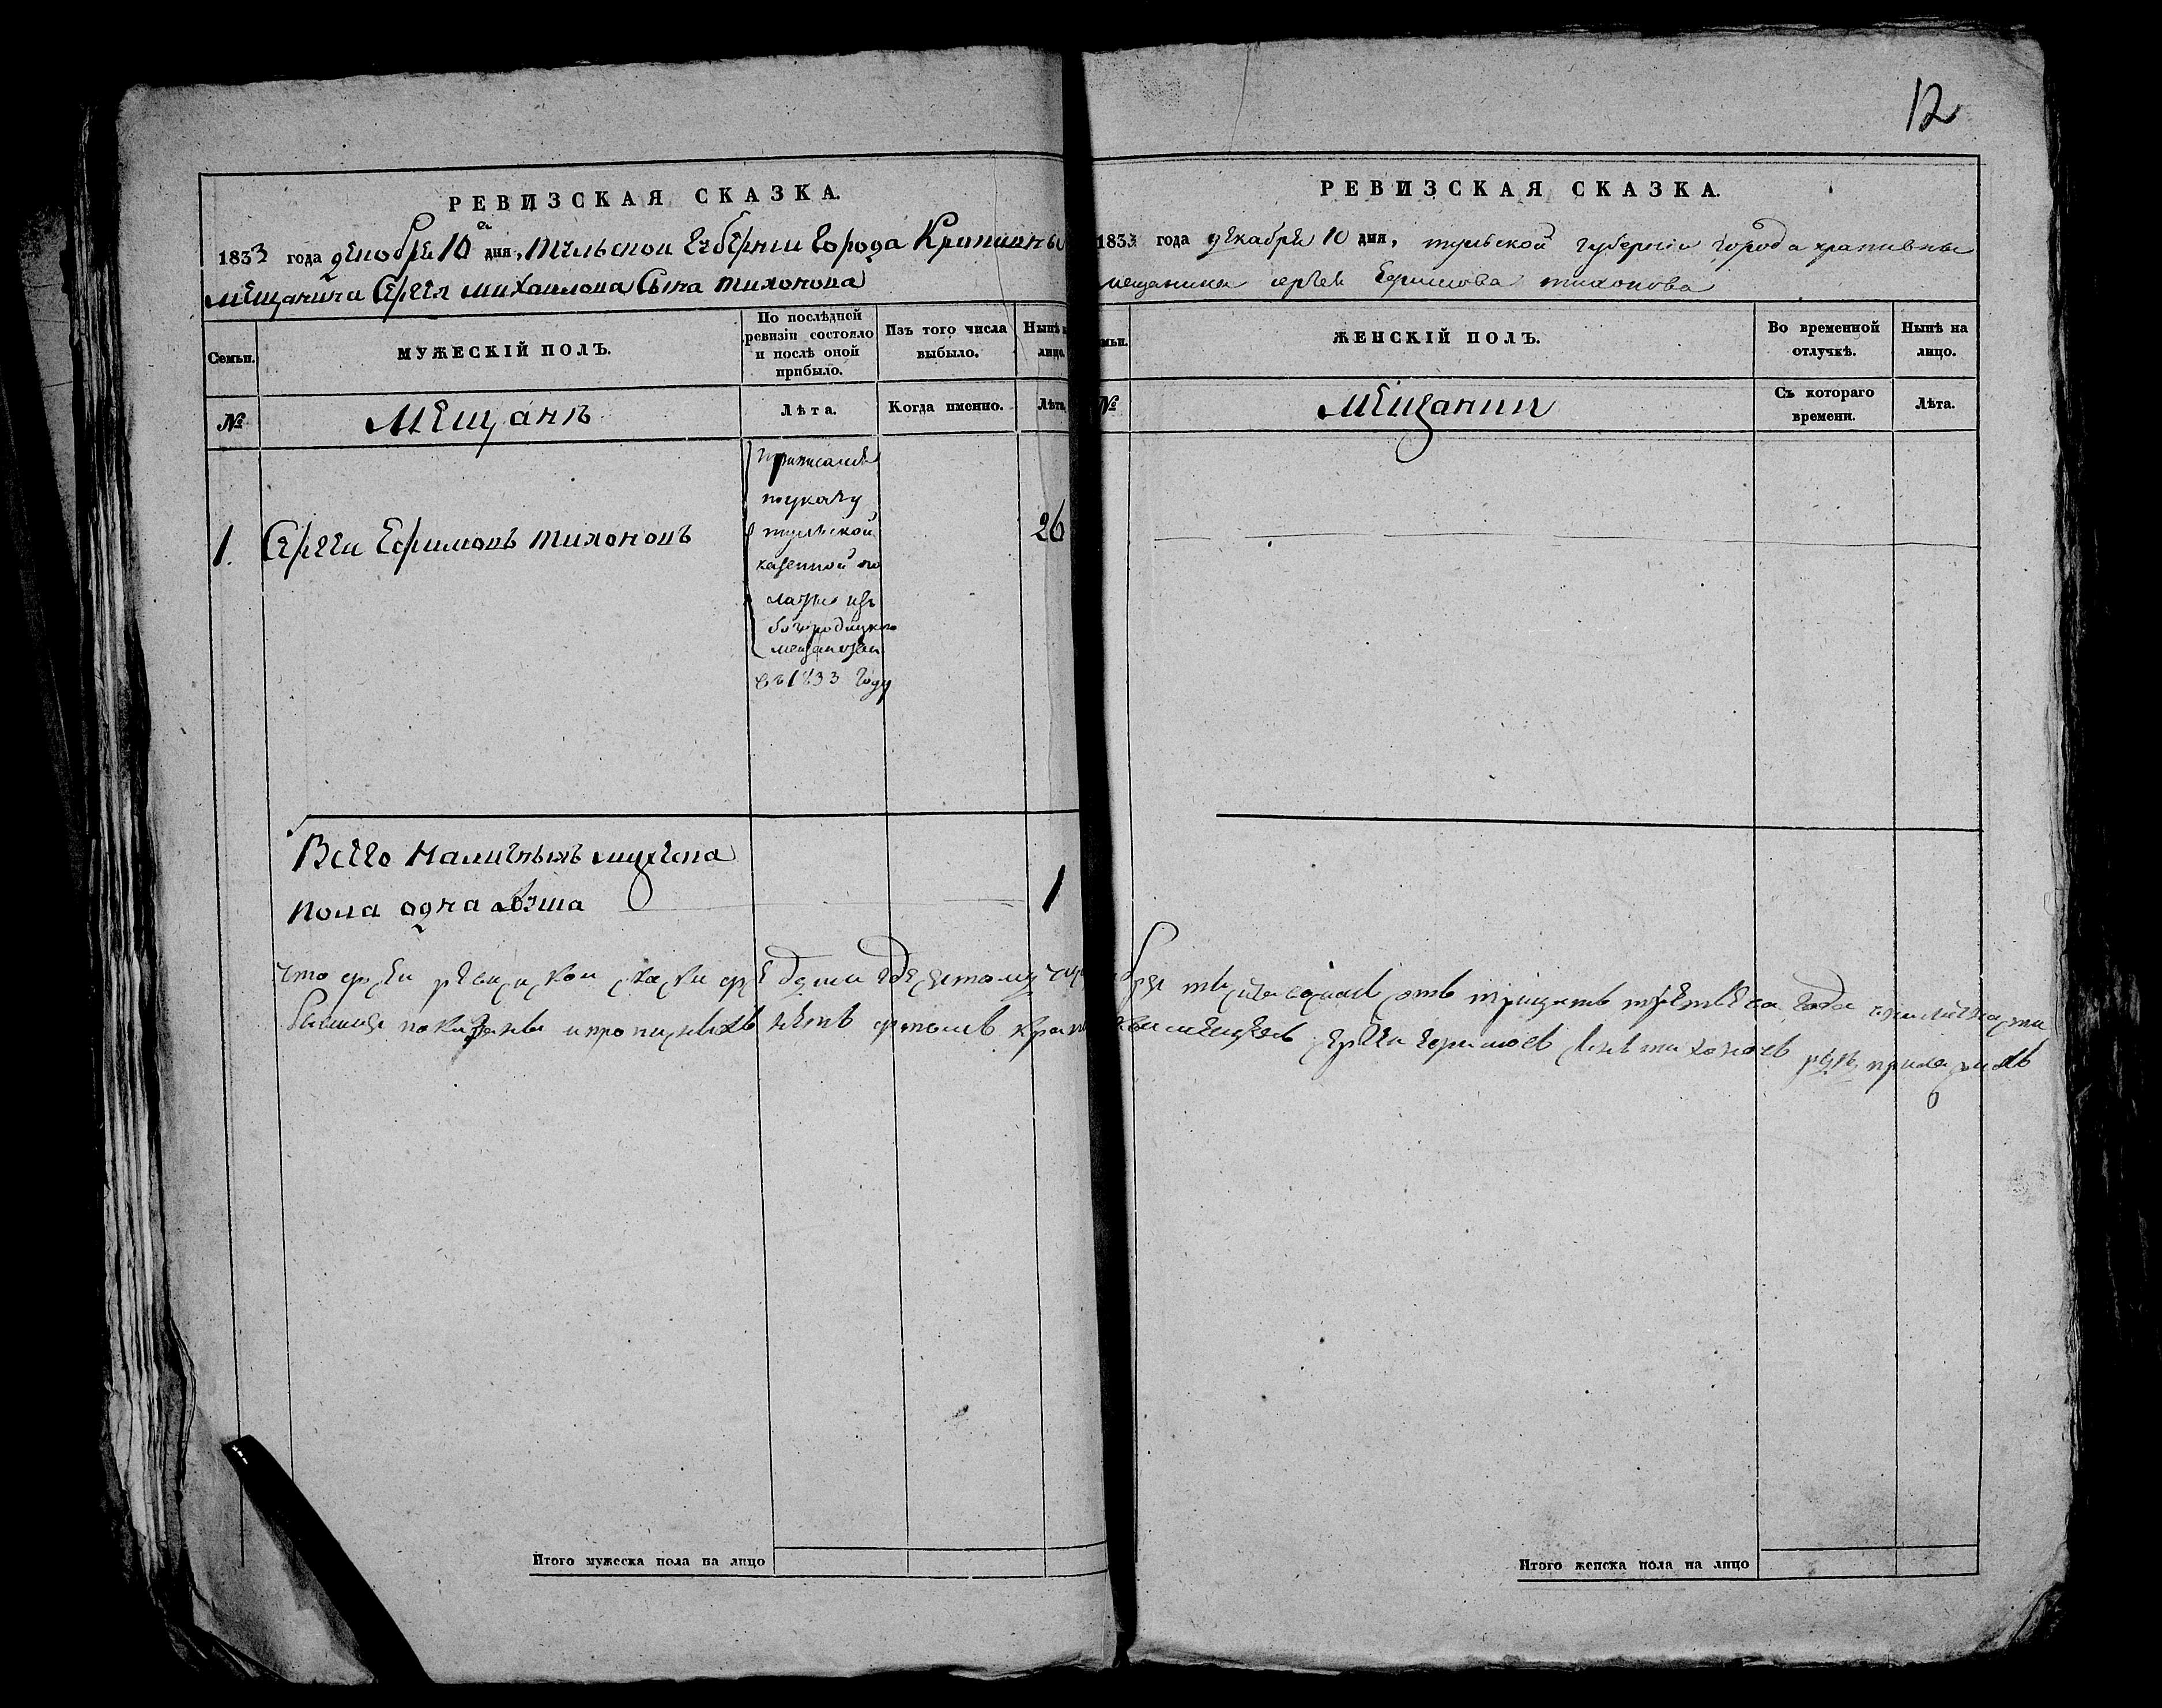 РЕВИЗСКАЯ СКАЗКА.
1833 года декабря 10 дня, Тульской Губернии города Крапивны
мещанина Сергея Михаилова Сына Тихонова
Семьи.
МУЖЕСКІЙ ПОЛЪ.
По послѣдней ревизіи состояло и послѣ оной прибыло.
Изъ того числа выбыло.
Нынѣ на лицо.
№
Мещанъ
Лѣта.
Когда именно.
Лѣта.
1.
Сергеи Ефимовъ Тихоновъ
Приписанъ
поуказу
тульской
казенной по
латы изъ
богородицкого
мещанства
въ 1833 году
26
Всего наличныхъ мужеска
пола одна душа
1
Итого мужеска пола на лицо
12
РЕВИЗСКАЯ СКАЗКА.
1833 года декабря 10 дня, тульской губерніи города крапивны
мещанина сергея Ефимова тихонова
ЖЕНСКІЙ ПОЛЪ.
Во временной отлучкѣ.
Нынѣ на лицо.
№
Мещанки
Съ котораго времени.
Лѣта.
Что ревизкои скаски душа тысеча трицать третьева года
показаны ипрописныхъ нетъ сергеи ефимовъ сынъ тихоновъ руку приложилъ
Итого женска пола на лицо